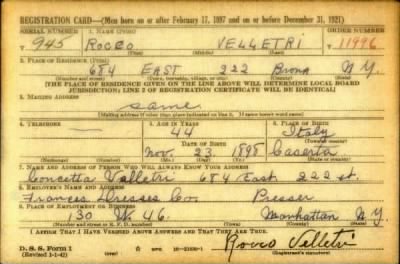 REGISTRATION CARD—(Men born on or after February 17, 1897 and on or before December 31, 1921)
SERIAL NUMBER 1. NAME (Print) ORDER NUMBER
T 945 ROCCO VELLETRI 11996
(First) (Middle) (Last)
2. PLACE OF RESIDENCE (Print)
684 EAST 222 Bronx N Y.
(Number and street) (Town, township, village, or city) (County) (State)
[THE PLACE OF RESIDENCE GIVEN ON THE LINE ABOVE WILL DETERMINE LOCAL BOARD
JURISDICTION; LINE 2 OF REGISTRATION CERTIFICATE WILL BE IDENTICAL]
3. MAILING ADDRESS
same
[Mailing address if other than place indicated on line 2. If same insert word same]
4. TELEPHONE 5. AGE IN YEARS 6. PLACE OF BIRTH
— 44 Italy
DATE OF BIRTH (Town or county)
Nov 23 1898 Caserta
(Exchange) (Number) (Mo.) (Day) (Yr.) (State or country)
7. NAME AND ADDRESS OF PERSON WHO WILL ALWAYS KNOW YOUR ADDRESS
Concetta Velletri 684 East 222 st.
8. EMPLOYER'S NAME AND ADDRESS
Frances Dresses Co. Presser
9. PLACE OF EMPLOYMENT OR BUSINESS
130 W. 46. Manhattan N Y.
(Number and street or R. F. D. number) (Town) (County) (State)
I AFFIRM THAT I HAVE VERIFIED ABOVE ANSWERS AND THAT THEY ARE TRUE.
D. S. S. Form 1
(Revised 1-1-42) Rocco Velletri
(Registrant's signature)